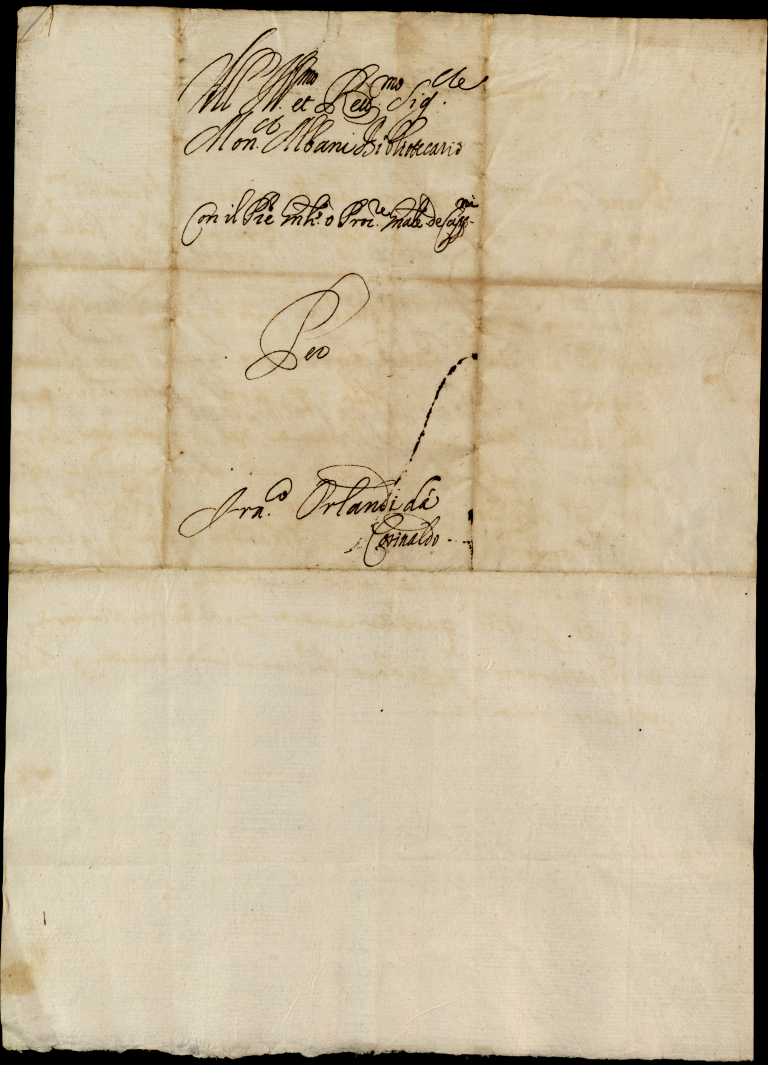 All Ill.mo et Reu.mo Sig.
Mon. Albani Bibliotecario
Con il P̃re o Proc.re de Capp.ni
Per
Fran.co Orlandi dà
Corinaldo